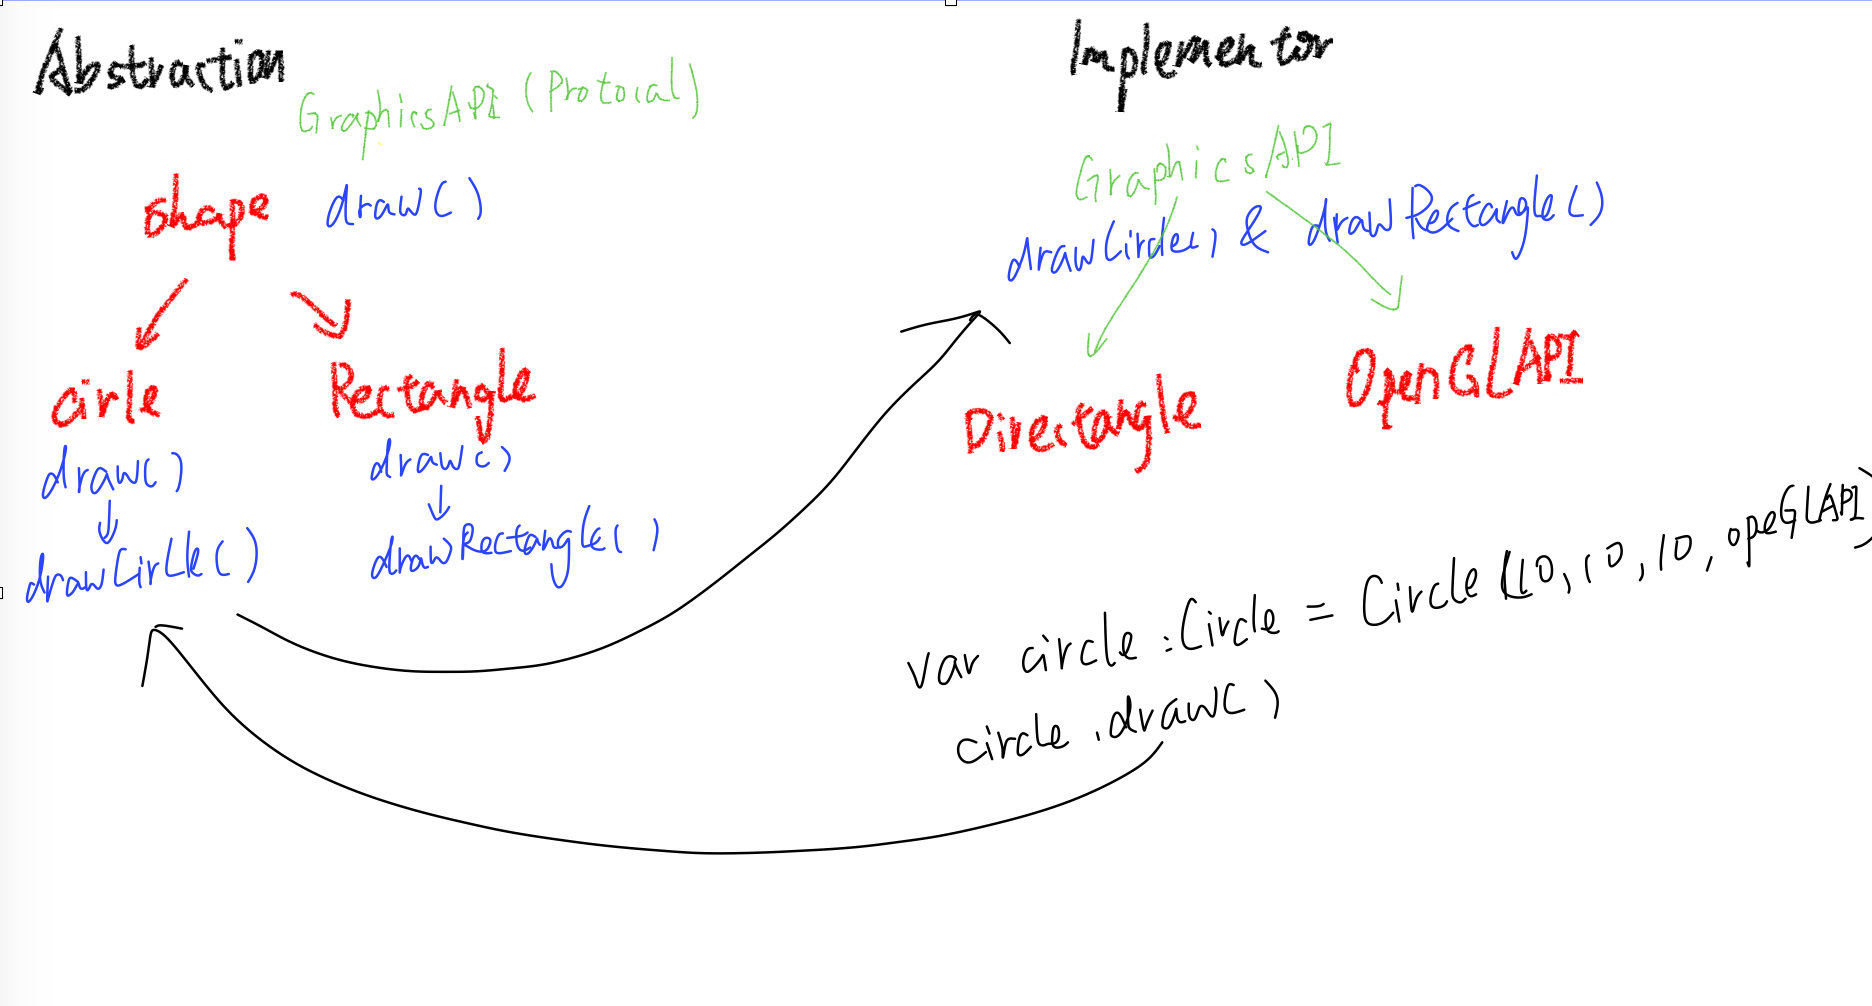 Abstraction
GraphicsAPI (Protoial)
shape draw()
cirle
Rectangle
draw()
draw()
drawCirlle()
drawRectangle()
Implementor
GraphicsAPI
drawCircle() & drawRectangle()
Directangle
OpenGLAPI
var circle :Circle = Circle (10,10,10, opeGLAPI)
circle .draw()